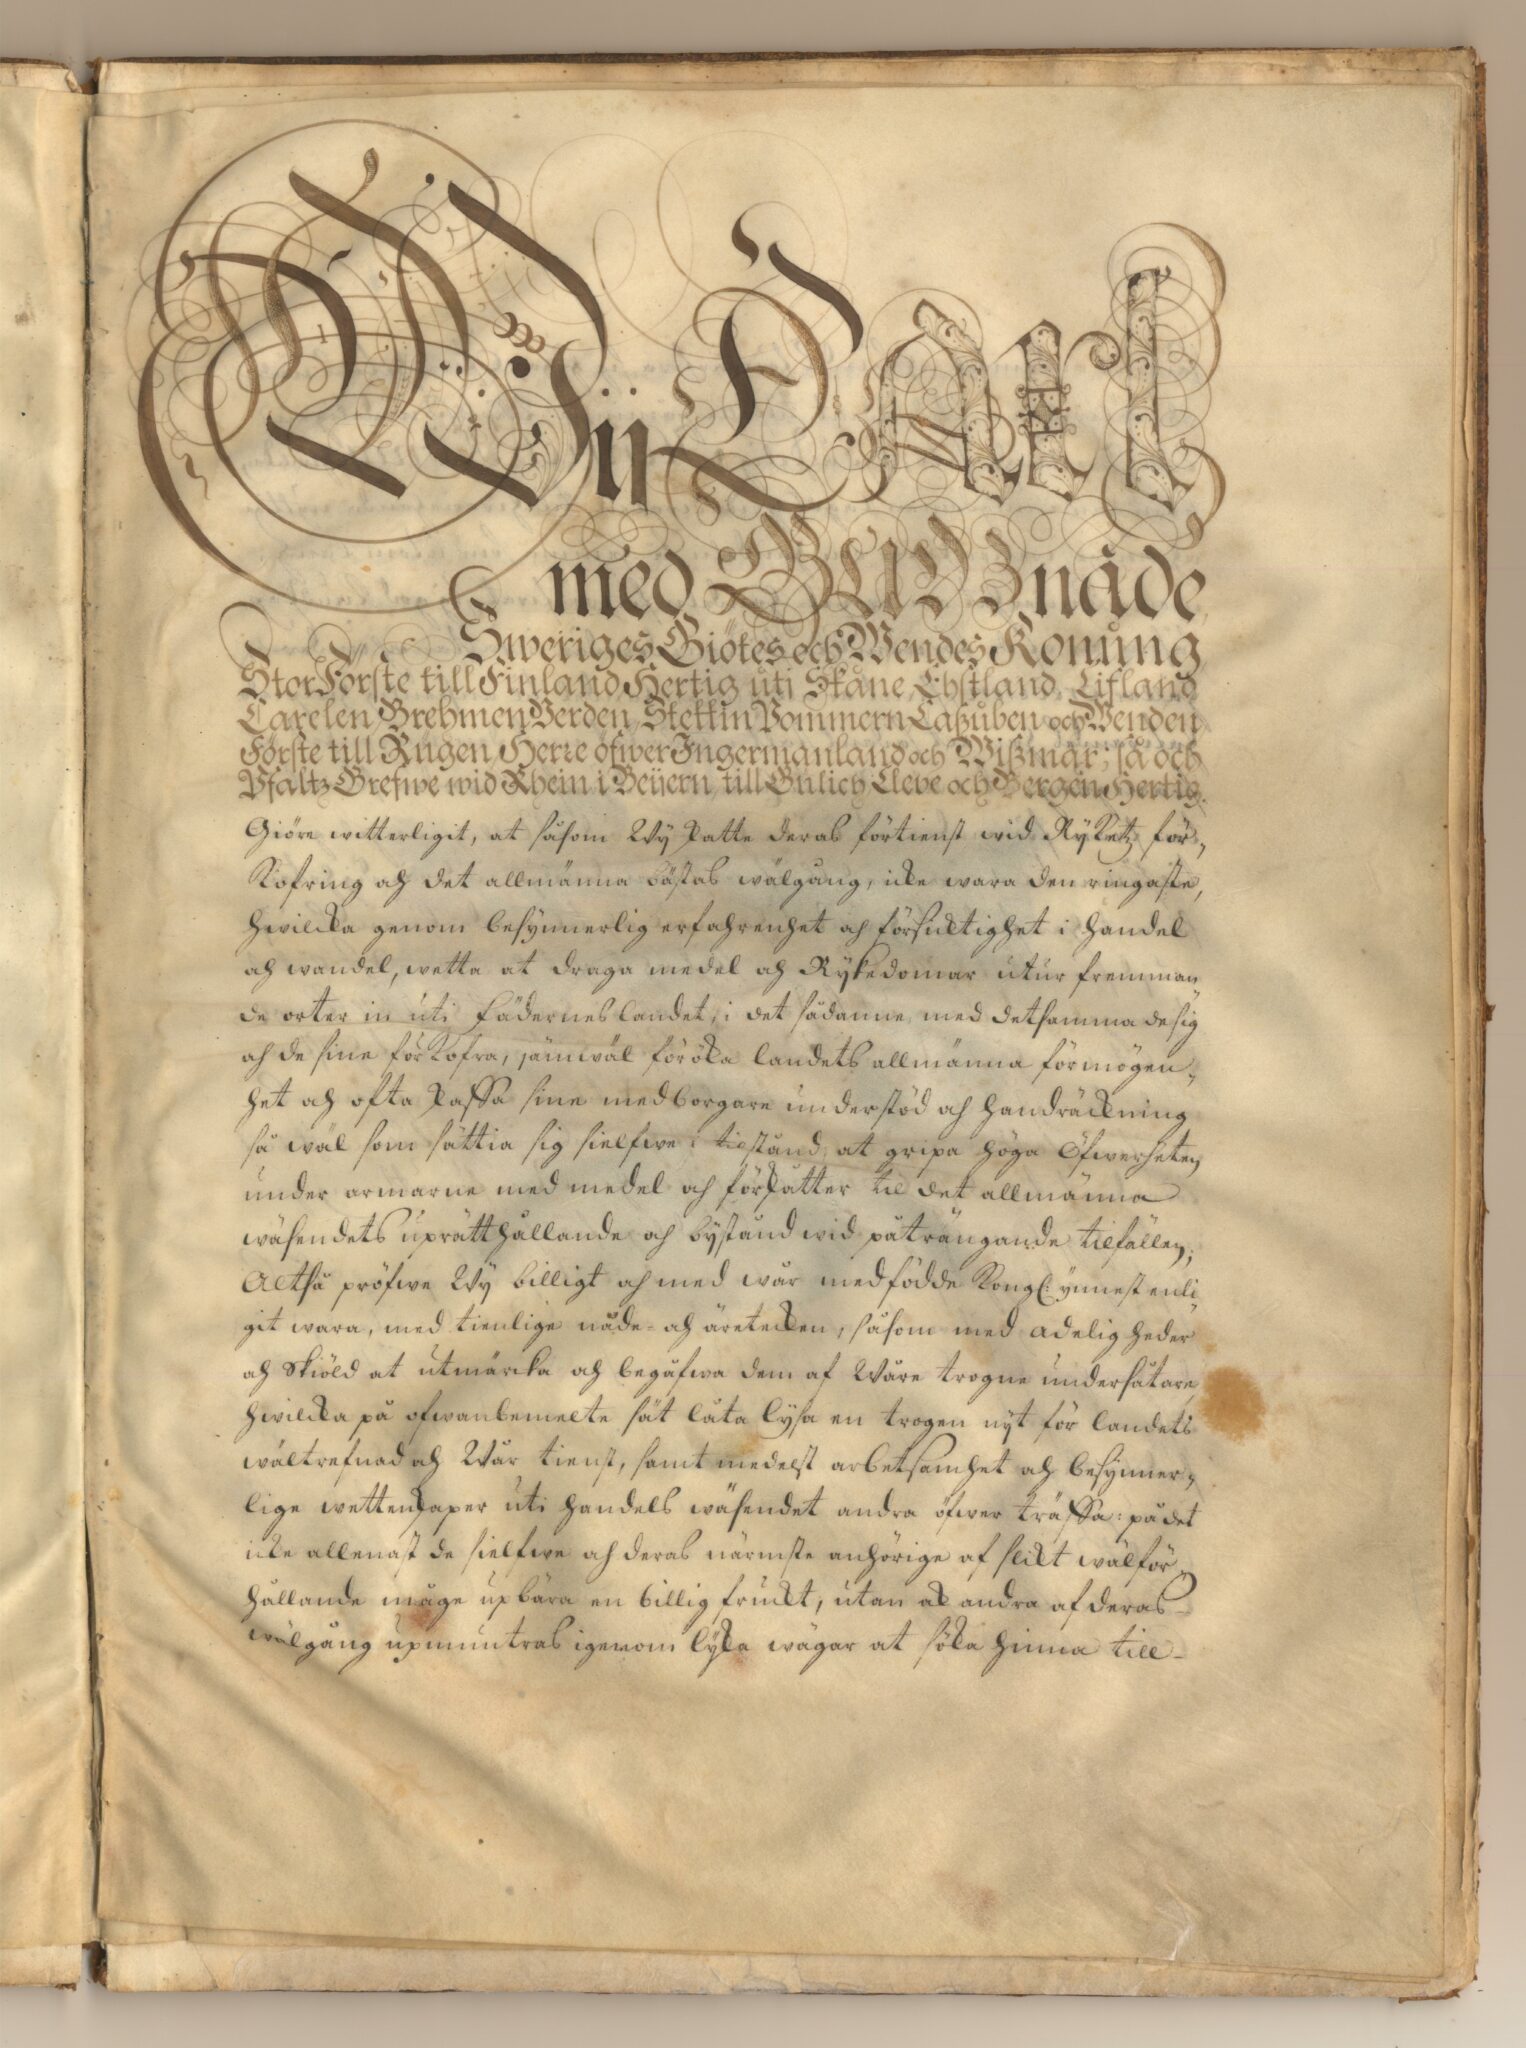 Wij Carl
med Gudz nåde
Sweriges Giötes och Wendes Konung
StorFörste till Finland, Hertig uti Skåne, Ehstland, Lifland
Carelen, Brehmen, Verden, Stettin Pommern Caßuben och Wenden
Förste till Rügen, Herre öfwer Ingermanland och Wißmar; så och
Pfaltz Grefwe wid Rhein i Beijern, till Gülich Cleve och Bergen Hertig.
Giöre witterligit, at såsom Wy skatte deras förtienst wid Ryketz för-
kofring och det allmänna bästas wälgång, icke wara den ringaste,
hwilcka genom besynnerlig erfahrenhet och försicktighet i handel
och wandel, wetta at draga medel och Rykedomar utur fremman
de orter in uti Fäderneslandet, i det sådanne med detsamma de sig
och de sine förkofra, jämwäl föröka landets allmänna förmögen-
het och ofta skaffa sine medborgare understöd och handräckning
så wäl som sättia sig sielfwe i tilstånd, at gripa höga Öfwerheten
under armarne med medel och förskatter til det allmänna
wäsendets uprätthållande och bystånd wid påträngande tilfällen;
Altså pröfwe Wy billigt och med wår medfödde Kongl: ynnest enli
git wara, med tienlige nåde- och äretecken, såsom med adelig heder
och Skiöld at utmärcka och begåfwa dem af Wåre trogne undersåtare
hwilcka på ofwanbemelte sät låta lysa en trogen nyt för landets
wältrefnad och Wår tienst, samt medelst arbetsamhet och besynner-
lige wettenskaper uti handels wäsendet andra öfwer träffa: på det
icke allenast de sielfwe och deras närmste anhörige af slikt wälför-
hållande måge upbära en billig fruckt, utan ock andra af deras
wälgång upmuntras igenom lyka wägar at söka hinna till-